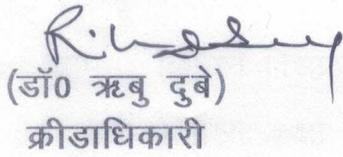 (डॉ0 ऋबु दुबे)
क्रीडाधिकारी